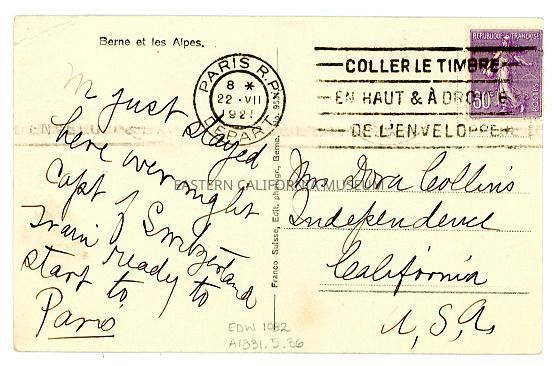 Berne et les Alpes.
PARIS R.P.
8 *
22 · VII
DEPART
COLLER LE TIMBRE
EN HAUT & À DROITE
DE L'ENVELOPPE
REPUBLIQUE FRANÇAISE
60c
POSTES
Just stayed
here over night
Capt of Switzerland
train ready to
start to
Paris
Franco Suisse, Edit. photogr., Berne.
EASTERN CALIFORNIA MUSEUM
Mrs Dora Collins
Independence
California
U, S, A,
EDW 1082
A1331.5.36